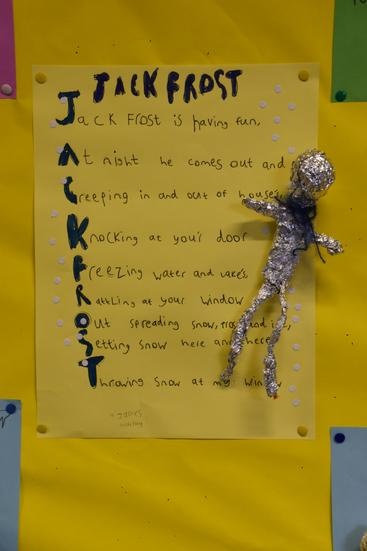 JACK FROST
Jack Frost is having fun,
At night he comes out and
Creeping in and out of house's
Knocking at your door
Freezing water and lake's
Rattling at your window
Out spreading snow, frost and ice,
Setting snow here and there
Throwing snow at my window